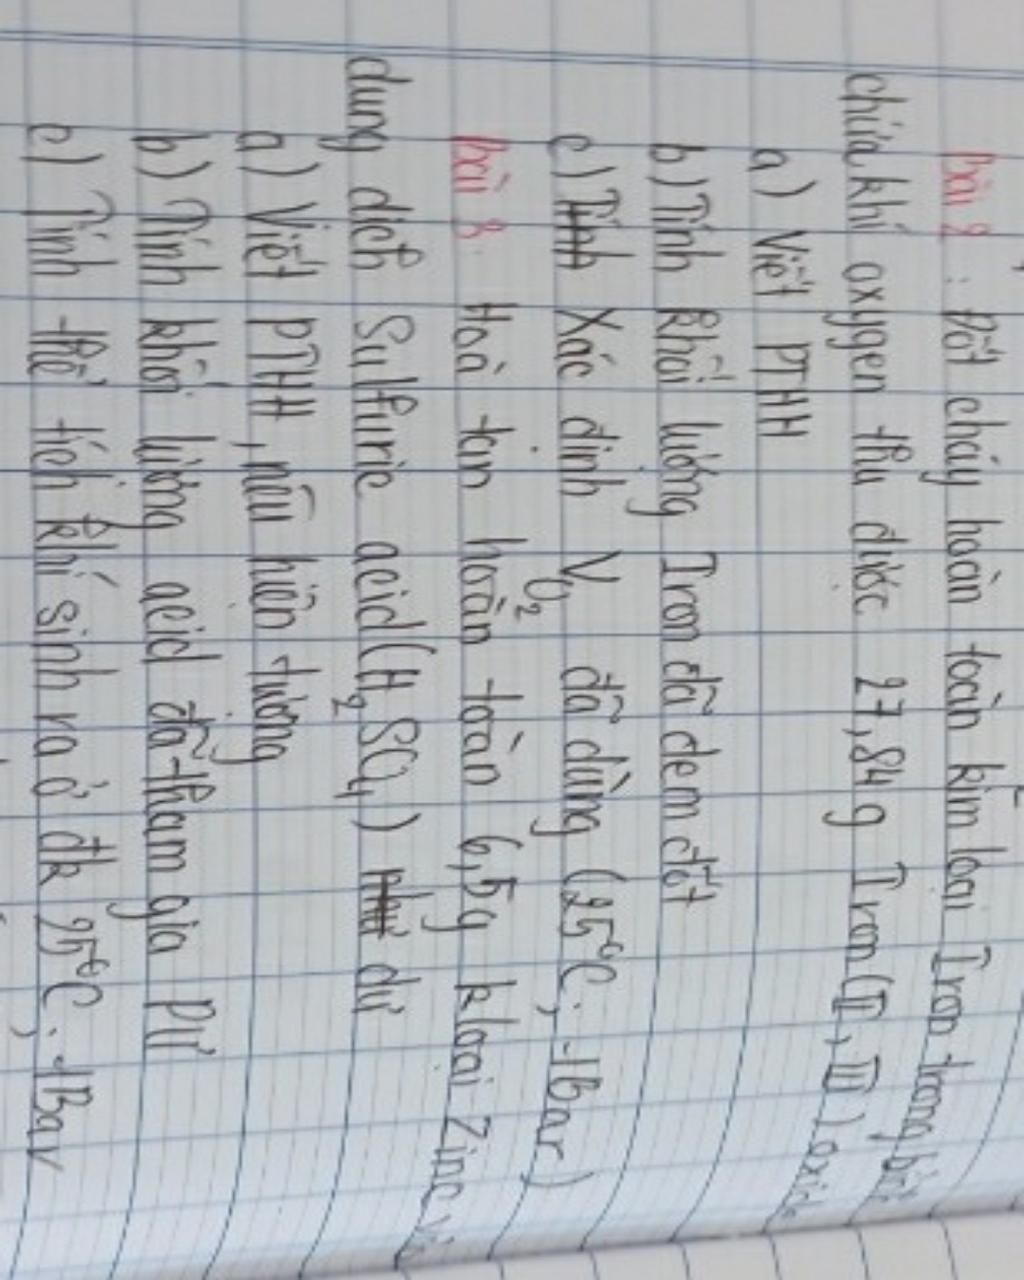 bài 2 : Đốt cháy hoàn toàn kim loại Iron trong bình
chứa khí oxygen thu được 27,84g Iron (II, III) oxide
a) Viết PTHH
b) Tính khối lượng Iron đã đem đốt
c) Xác định V O2 đã dùng (25°C, 1Bar)
bài 3. Hoà tan hoàn toàn 6,5g kloại Zinc
dung dịch Sulfuric acid (H2SO4) dư
a) Viết PTHH, nêu hiện tượng
b) Tính khối lượng acid đã tham gia PƯ
c) Tính thể tích khí sinh ra ở đk 25°C, 1Bar